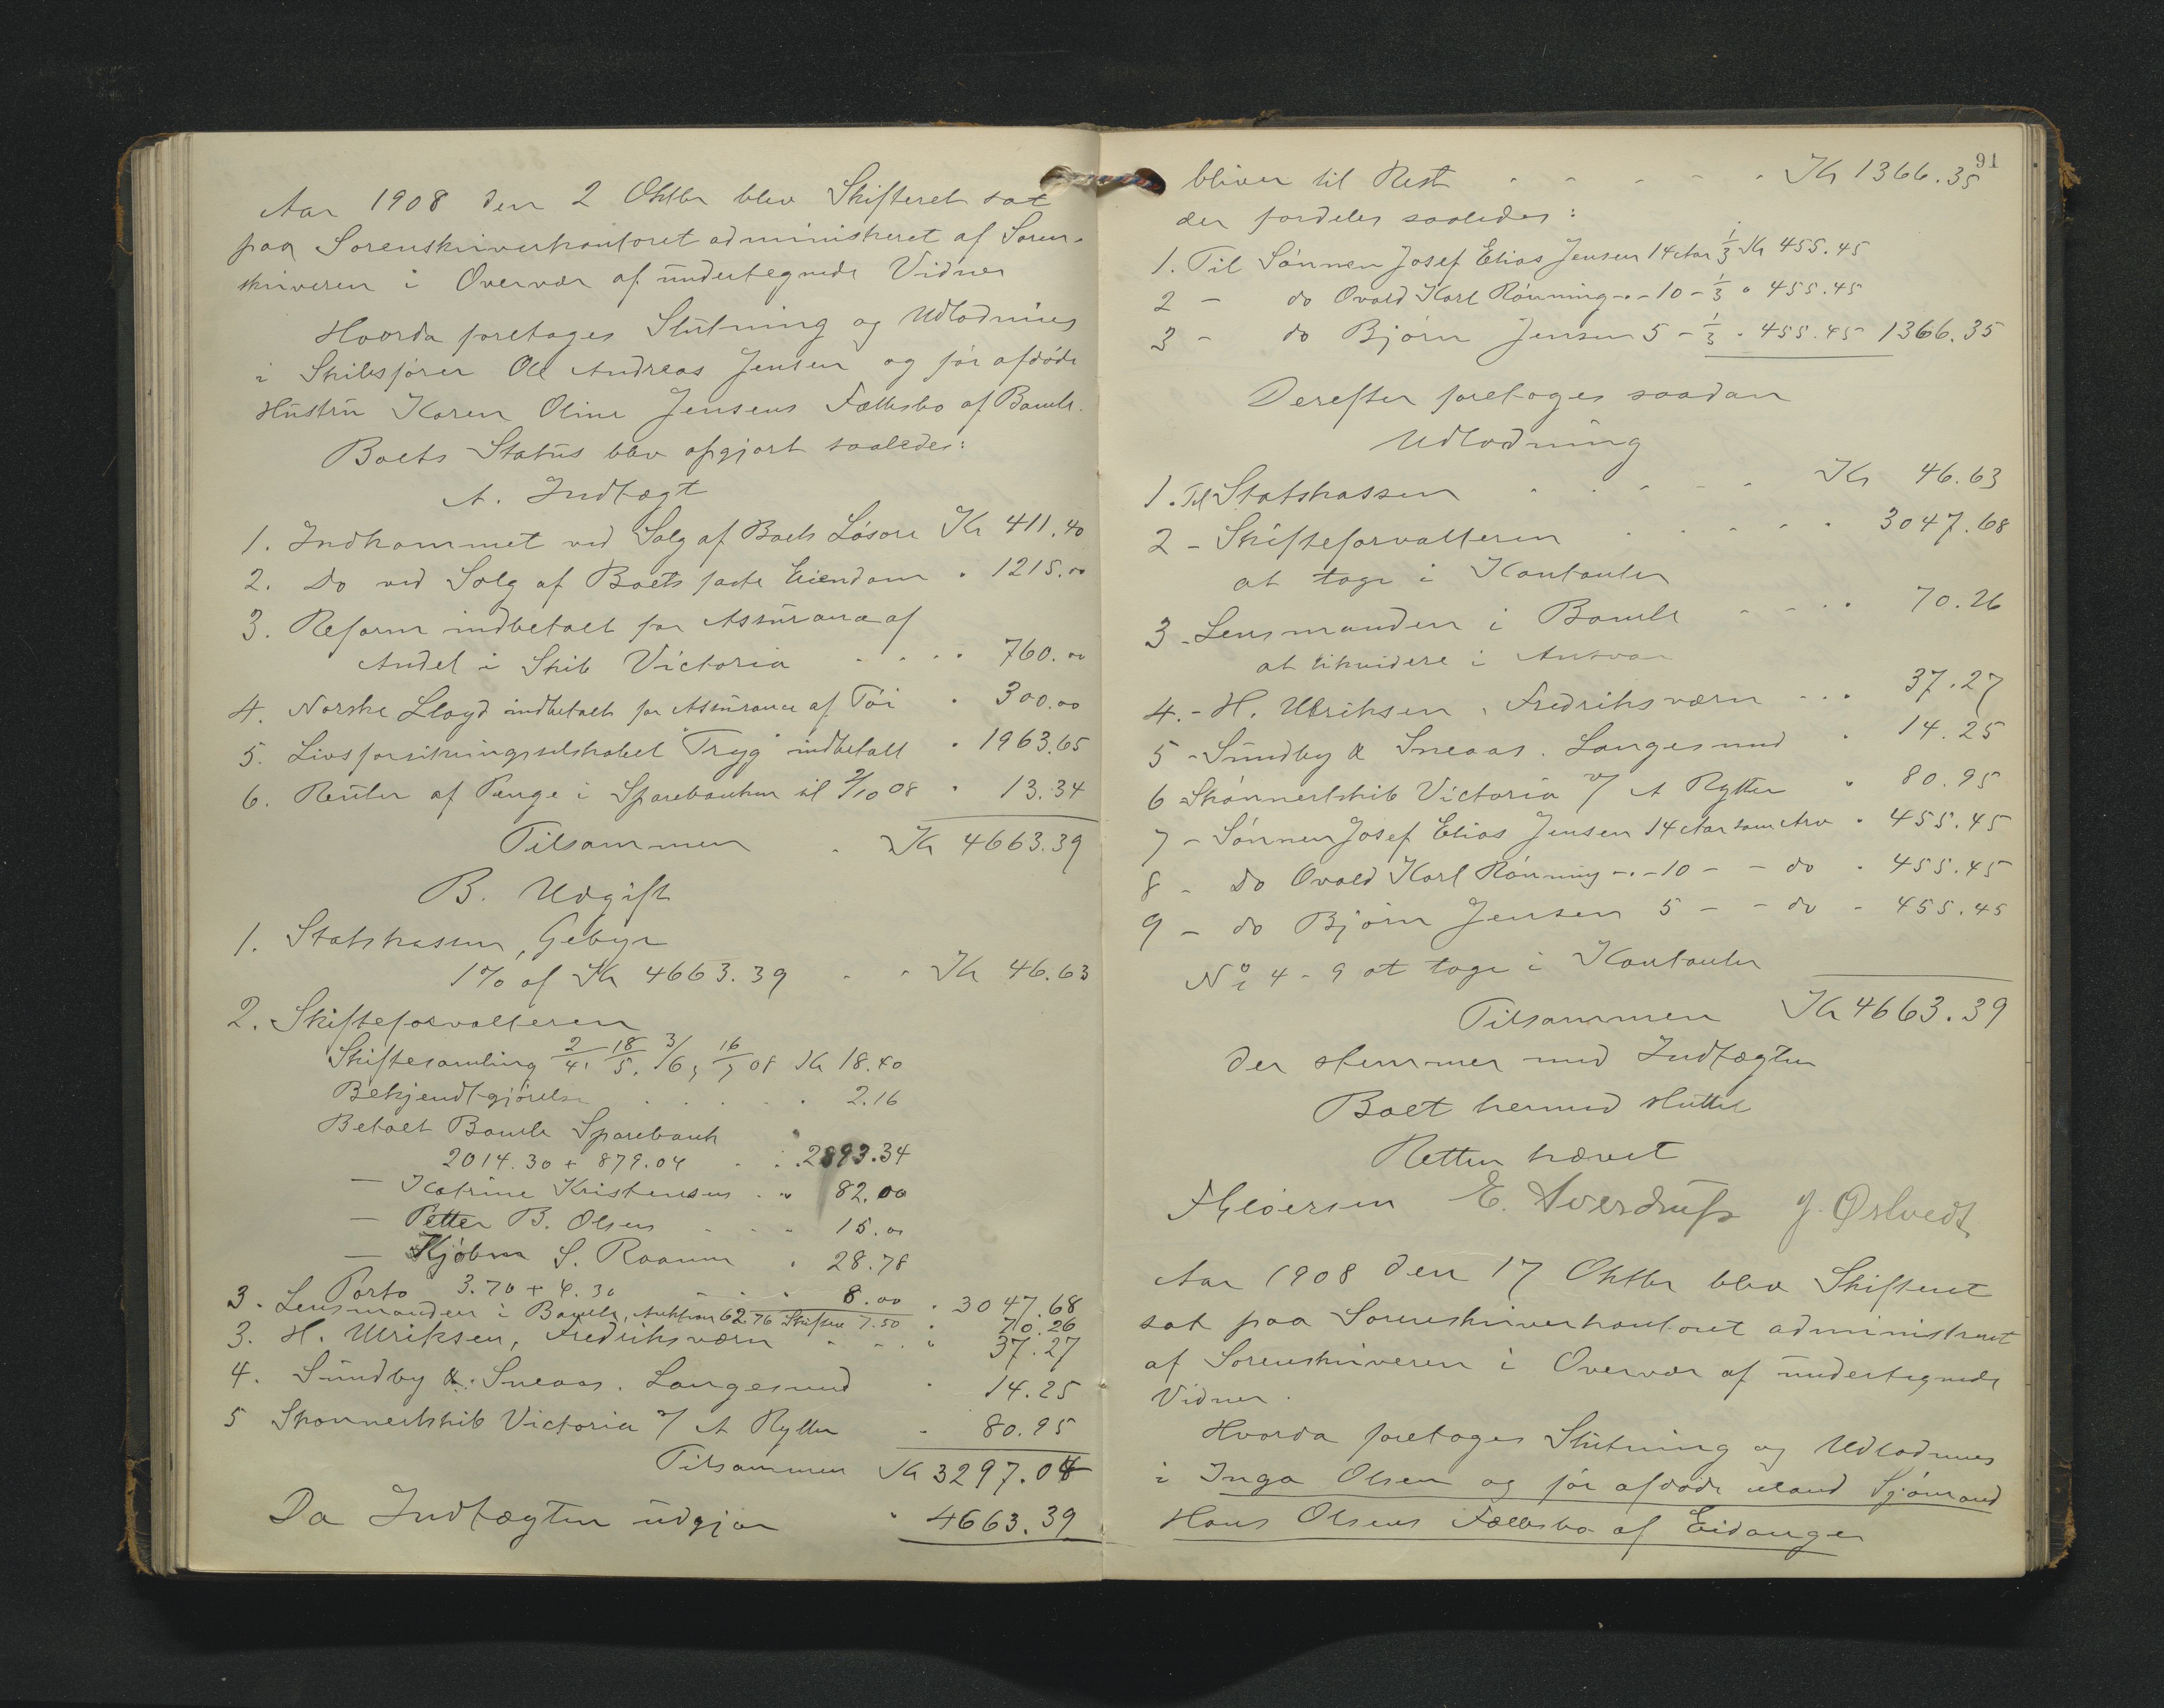 Aar 1908 den 2 Oktbr blev Skifteret sat
paa Sorenskriverkontoret administreret af Soren-
skriveren i Overvær af undertegnede Vidner
Hvorda foretages Slutning og Udlodnings
i Skibsfører Ole Andreas Jensen og før afdøde
Hustru Karen Oline Jensens Fællesbo af Bamle.
Boets Status blev opgjort saaledes:
A. Indtægt
1. Indkommet ved Salg af Boets Løsøre Kr 411.40
2. Do ved Salg af Boets faste Eiendom " 1215.00
3. Reform indbetalt for Assurance af
Andel i Skib Victoria . . . . 760.00
4. Norske Lloyd indbetalt for Assurance af Tøi " 300.00
5. Livsforsikringsselskabet "Tryg" indbetalt " 1963.65
6. Renter af Penge i Sparebanken til 2/10 08 " 13.34
Tilsammen . Kr 4663.39
B. Udgift
1. Statskassen, Gebyr
1% af Kr 4663.39 . . Kr 46.63
2. Skifteforvalteren
Skiftesamling 2/4, 18/5, 3/6, 16/7 08 Kr 18.40
Bekjendtgjørelse . . . . . 2.16
Betalt Bamle Sparebank
2014.30 + 879.04 . . 2893.34
— Katrine Kristensen . " 82.00
— Petter B. Olsen . . . 15.00
— Kjøbm S. Raanum " 28.78
Porto 3.70 + 4.30 . . . 8.00 " 3047.68
3. Lensmanden i Bamle, Auktion 62.76 Skiftes 7.50 " 70.26
3. H. Ulriksen, Fredriksværn . . . " 37.27
4. Sundby & Sneaas. Langesund " 14.25
5 Skonnertskib Victoria v/ A Rytter . 80.95
Tilsammen Kr 3297.04
Da Indtægten udgjør " 4663.39
91
bliver til Rest . . . . . Kr 1366.35
der fordeles saaledes:
1. Til Sønnen Josef Elias Jensen 14 Aar 1/3 Kr 455.45
2 - do Ovald Karl Rønning -"- 10 - 1/3 " 455.45
3 - do Bjørn Jensen 5 - 1/3 " 455.45 1366.35
Derefter foretoges saadan
Udlodning
1. Til Statskassen . . . . . Kr 46.63
2 - Skifteforvalteren . . . . . 3047.68
at tage i Kontanter
3 - Lensmanden i Bamle . . . . 70.26
at likvidere i Ansvar
4. - H. Ulriksen, Fredriksværn . . . 37.27
5 - Sundby & Sneaas. Langesund " 14.25
6 Skonnertskib Victoria v/ A Rytter " 80.95
7 - Sønnen Josef Elias Jensen 14 Aar som Arv " 455.45
8 - Do Ovald Karl Rønning -"- 10 - - do " 455.45
9 - do Bjørn Jensen 5 - - do - 455.45
No 4 - 9 at tage i Kontanter
Tilsammen Kr 4663.39
der stemmer med Indtægten
Boet hermed sluttet
Retten hævet
E. Sverdrup J. Østvedt
Aar 1908 den 17 Oktbr blev Skifteret
sat paa Sorenskriverkontoret administreret
af Sorenskriveren i Overvær af undertegnede
Vidner.
Hvorda foretages Slutning og Udlodnings
i Inga Olsen og før afdøde Mand Sjømand
Hans Olsens Fællesbo af Eidanger